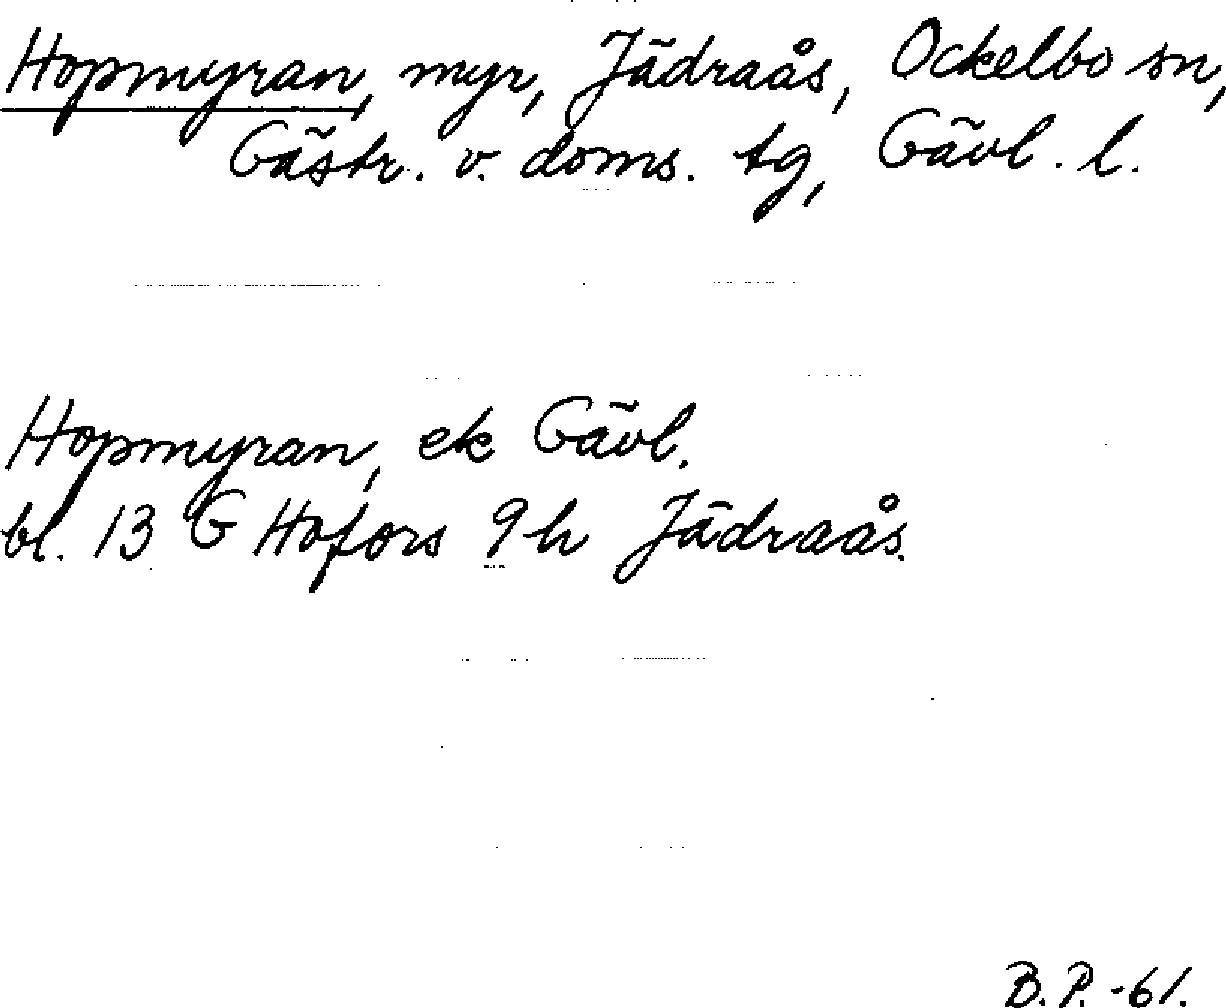 Hopmyran, myr, Jädraås, Ockelbo sn,
Gästr. v. doms. tg, Gävl. l.
Hopmyran, ek Gävl.
bl. 13 G Hofors 9h Jädraås.
B. P. -61.